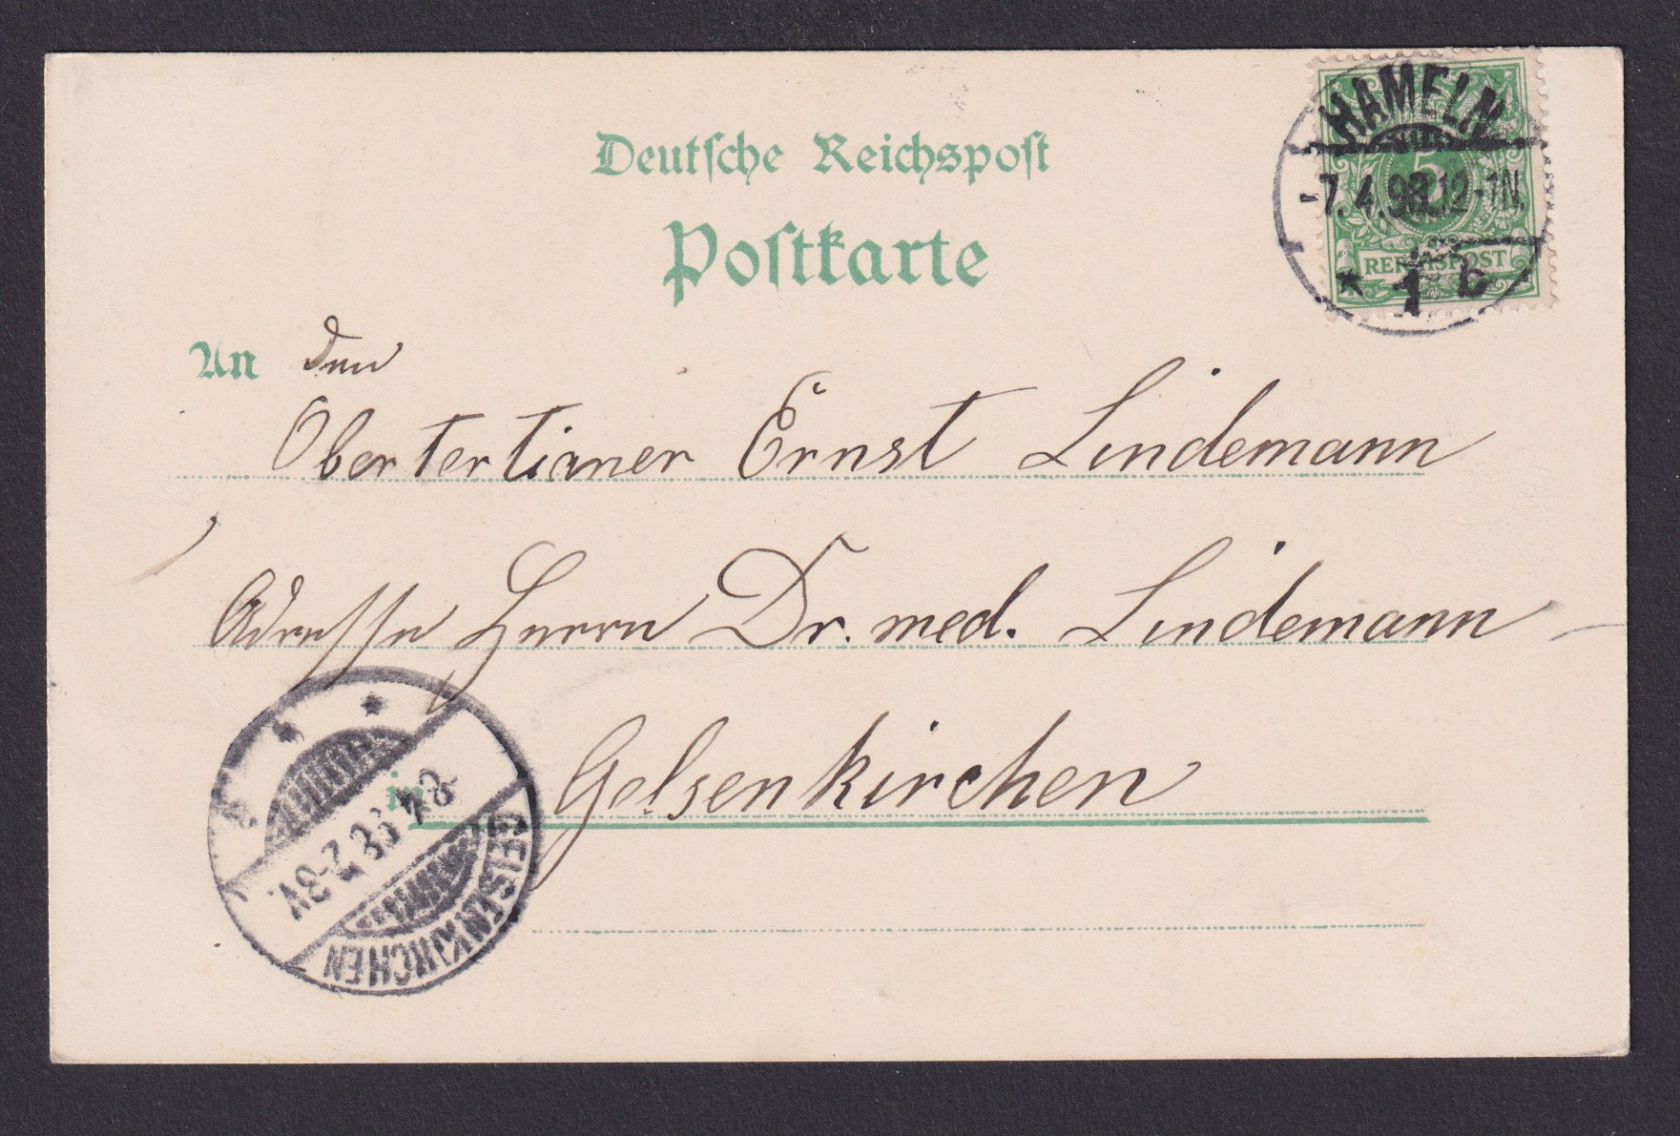 Deutsche Reichspost
Postkarte
HAMELN
7.4.98.12-1N.
* 1 b
5
REICHSPOST
An den
Obertertianer Ernst Lindemann
Adresse Herrn Dr. med. Lindemann
in Gelsenkirchen
8.4.98.7-8V.
GELSENKIRCHEN